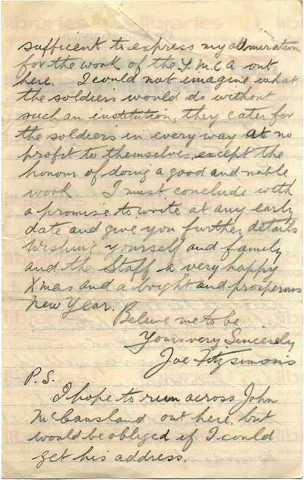 sufficent to express my admiration
for the work of the Y.M.C.A out
here. I could not imagine what
the soldiers would do without
such an institution, they cater for
the soldiers in every way at no
profit to themselves, except the
honour of doing a good and noble
work. I must conclude with
a promise to write at any early
date and give you further details
Wishing yourself and family
and the Staff a very happy
Xmas and a bright and prosperous
New Year.
Believe me to be
Yours very Sincerely
Joe Fitzsimons
P.S.
I hope to run across John
McCausland out here, but
would be obliged if I could
get his address.